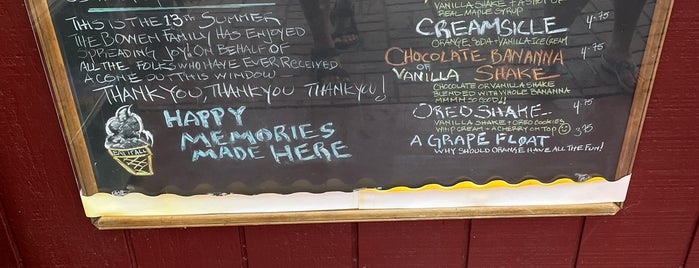 THIS IS THE 13TH SUMMER
THE BOWEN FAMILY HAS ENJOYED
SPREADING JOY! ON BEHALF OF
ALL THE FOLKS WHO HAVE EVER RECEIVED
A CONE OUT THIS WINDOW-
THANK YOU, THANK YOU THANK YOU!
HAPPY
MEMORIES
MADE HERE
VANILLA SHAKE + A SHOT OF
REAL MAPLE SYRUP
CREAMSICLE 4.75
ORANGE SODA + VANILLA ICE CREAM
CHOCOLATE BANANNA 4.75
OR
VANILLA SHAKE
CHOCOLATE OR VANILLA SHAKE
BLENDED WITH WHOLE BANANNA
MMMM SO GOOD!!
OREO SHAKE 4.75
VANILLA SHAKE + OREO COOKIES
WHIP CREAM + A CHERRY ON TOP
A GRAPE FLOAT 3.75
WHY SHOULD ORANGE HAVE ALL THE FUN!